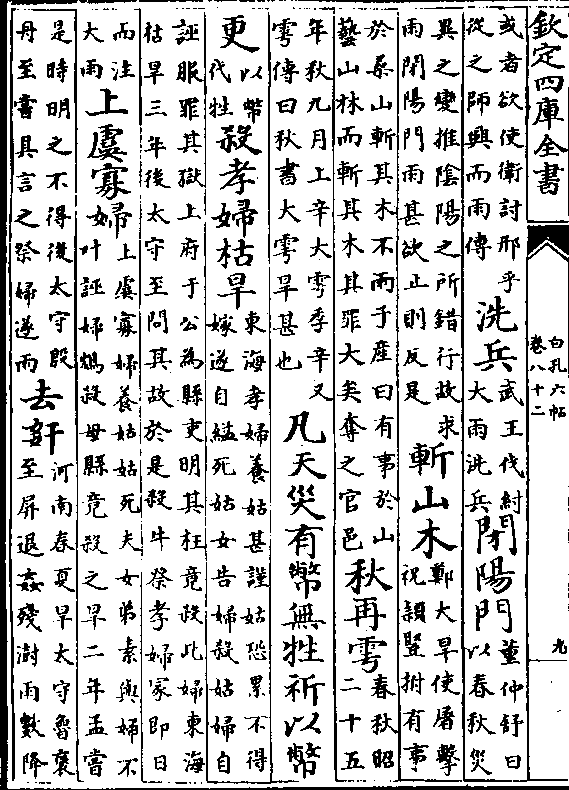 欽定四庫全書
白孔六帖
卷八十二
九
或者欲使衛討邢乎從之師興而雨傳洗兵武王伐紂大雨洗兵閉陽門董仲舒曰以春秋災
異之變推陰陽之所錯行故求雨閉陽門雨甚欲止則反是斬山木鄭大旱使屠擊祝款豎拊有事
於桑山斬其木不雨子產曰有事於山藝山林而斬其木其罪大矣奪之官邑秋再雩春秋昭二十五
年秋九月上辛大雩季辛又雩傳曰秋書大雩旱甚也凡天災有幣無牲祈以幣
更以幣代牲殺孝婦枯旱東海孝婦養姑甚謹姑恐累不得嫁遂自縊死姑女告婦殺姑婦自
誣服罪其獄上府于公為縣吏明其枉竟殺此婦東海枯旱三年後太守至問其故於是殺牛祭孝婦冢即日
而注大雨上虞寡婦上虞寡婦養姑姑死夫女弟素與婦不叶誣婦鴆殺母縣竟殺之旱二年孟嘗
是時明之不得後太守殷丹至嘗具言之祭婦遂雨去奸河南春夏旱太守魯褒至屏退姦殘澍雨數降